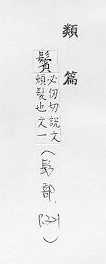 類篇
鬢必仞切說文
頰髮也文一
(髟部,